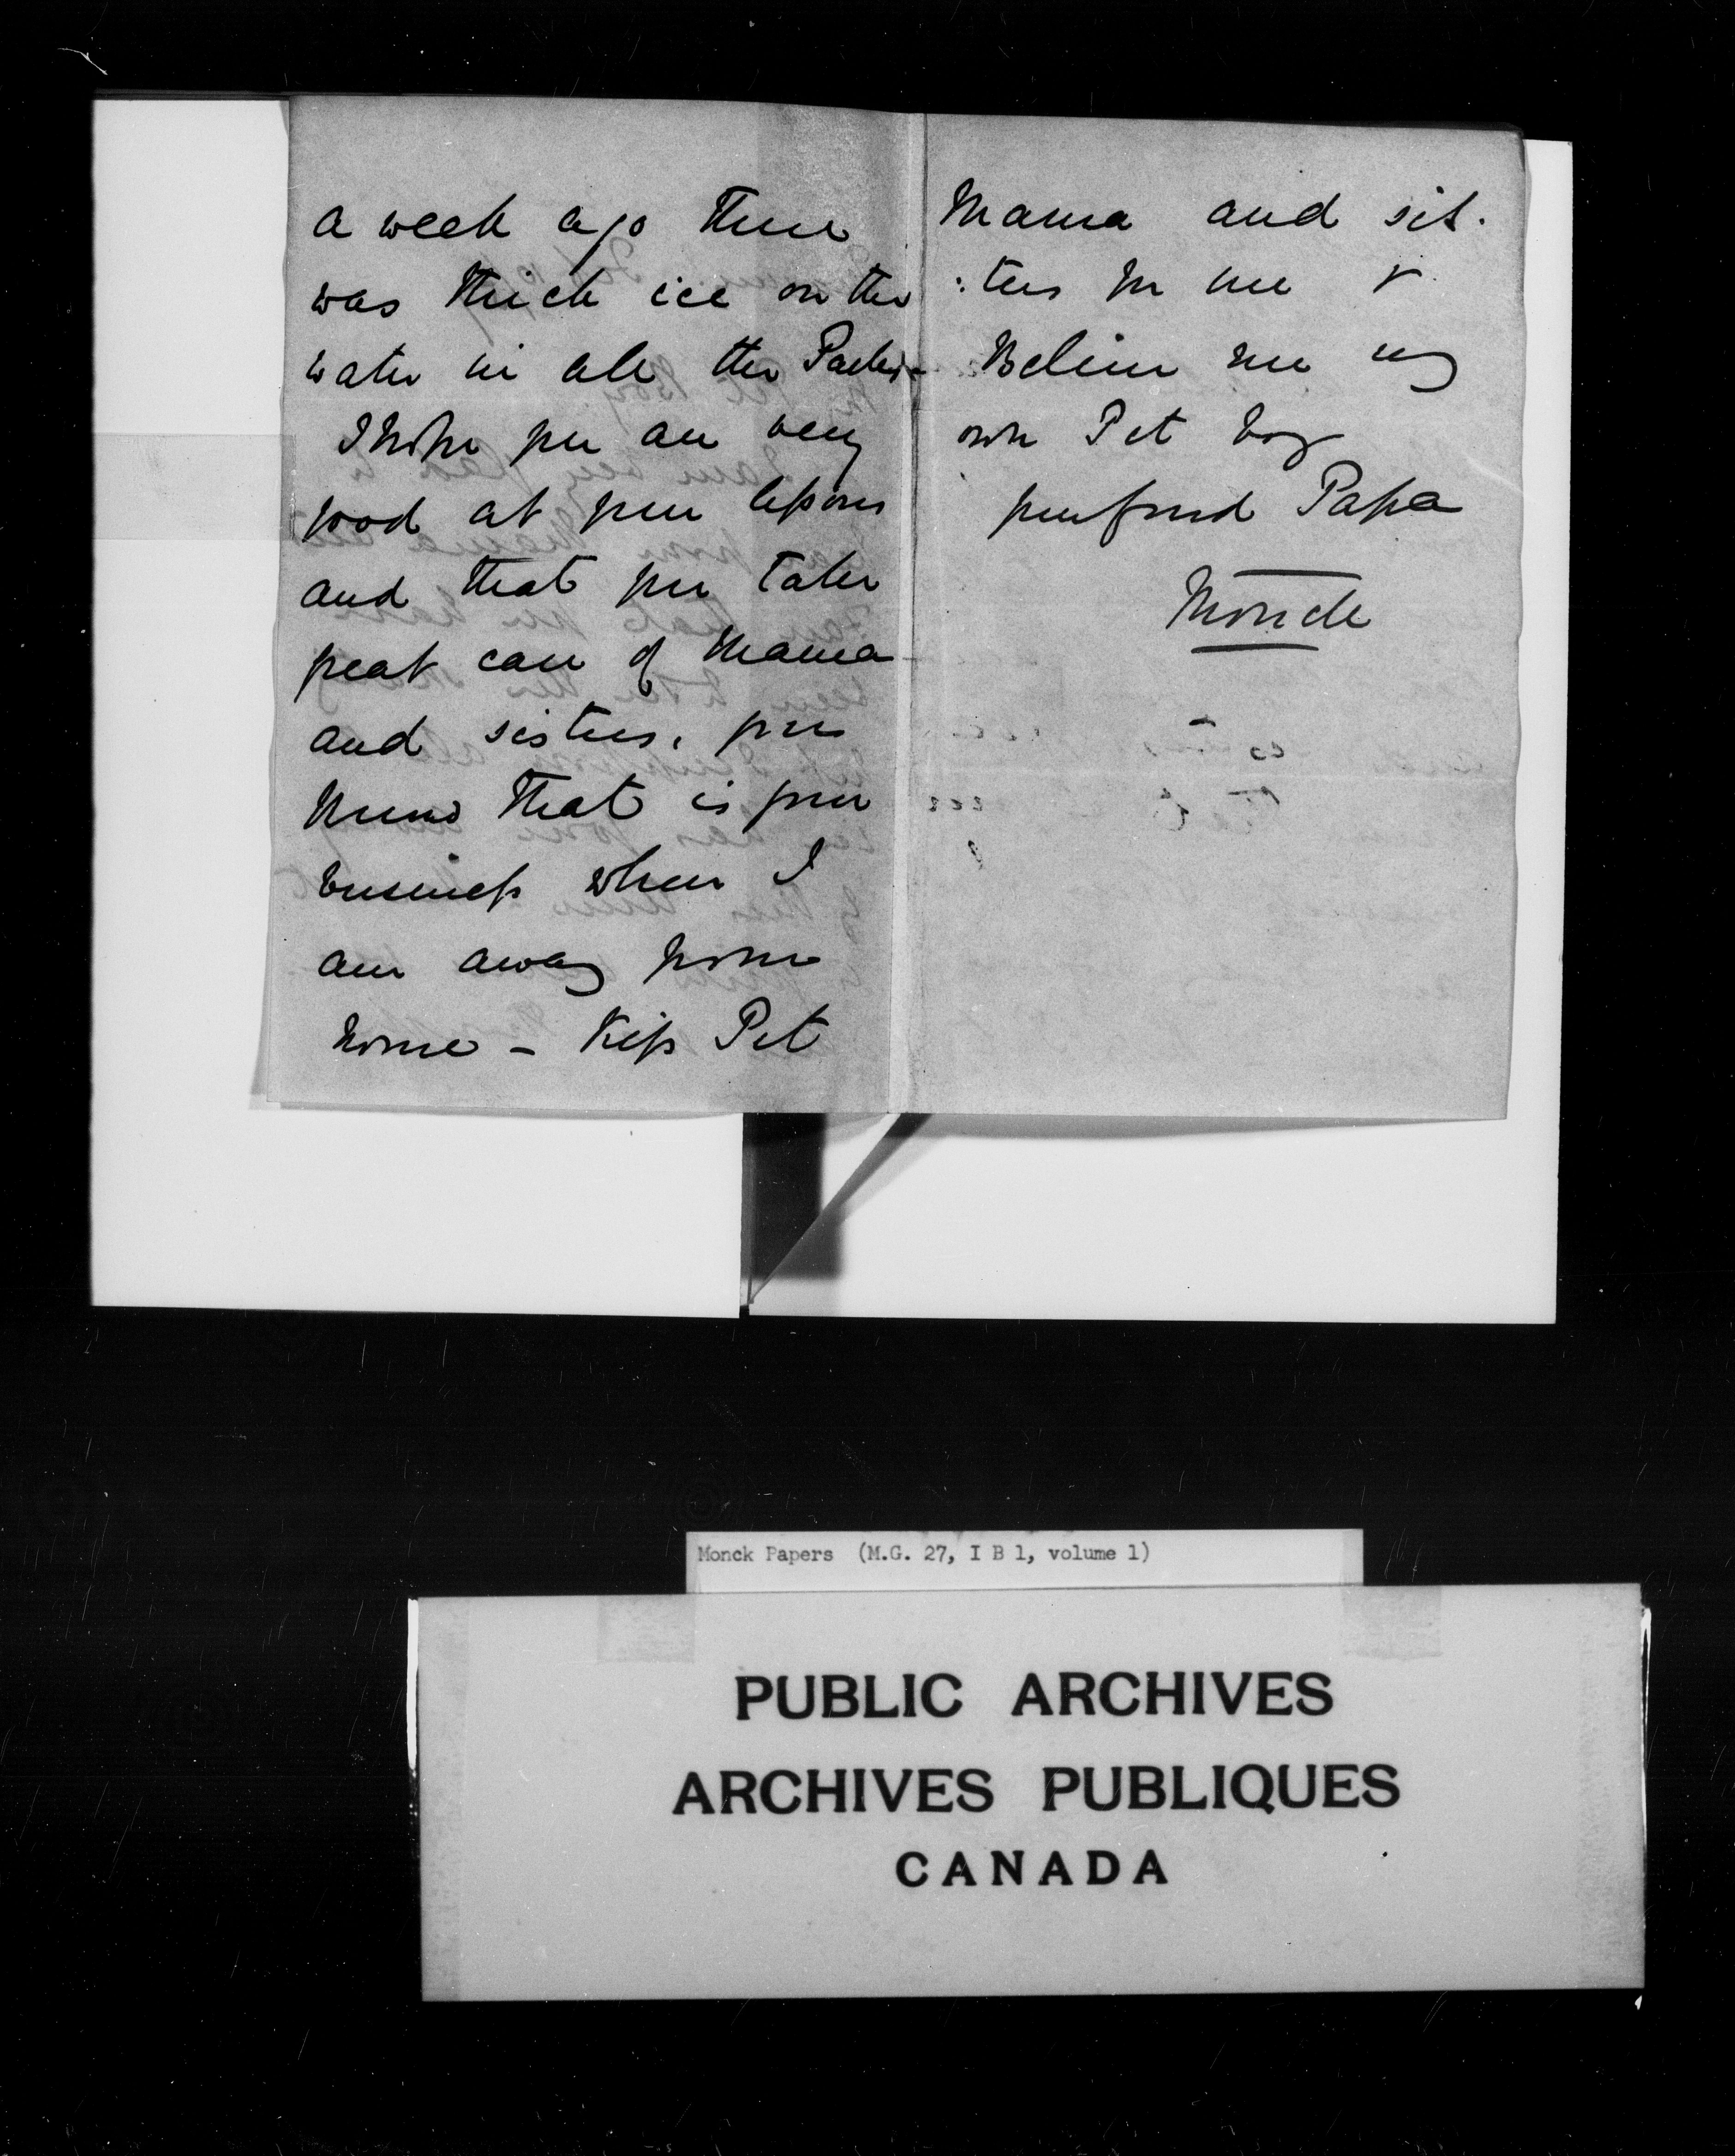 a week ago there
was thick ice on the
water in all the Parks -
I hope you are very
good at your lessons
and that you take
great care of Mama
and sisters, you
know that is your
business when I
am away from
home - Kiss Pet
Mama and sis-
:ters for me &
Believe me my
own Pet boy
your fond Papa
Monck
Monck Papers (M.G. 27, I B 1, volume 1)
PUBLIC ARCHIVES
ARCHIVES PUBLIQUES
CANADA